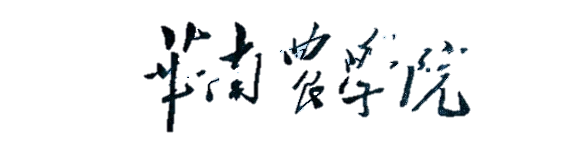 華南农學院